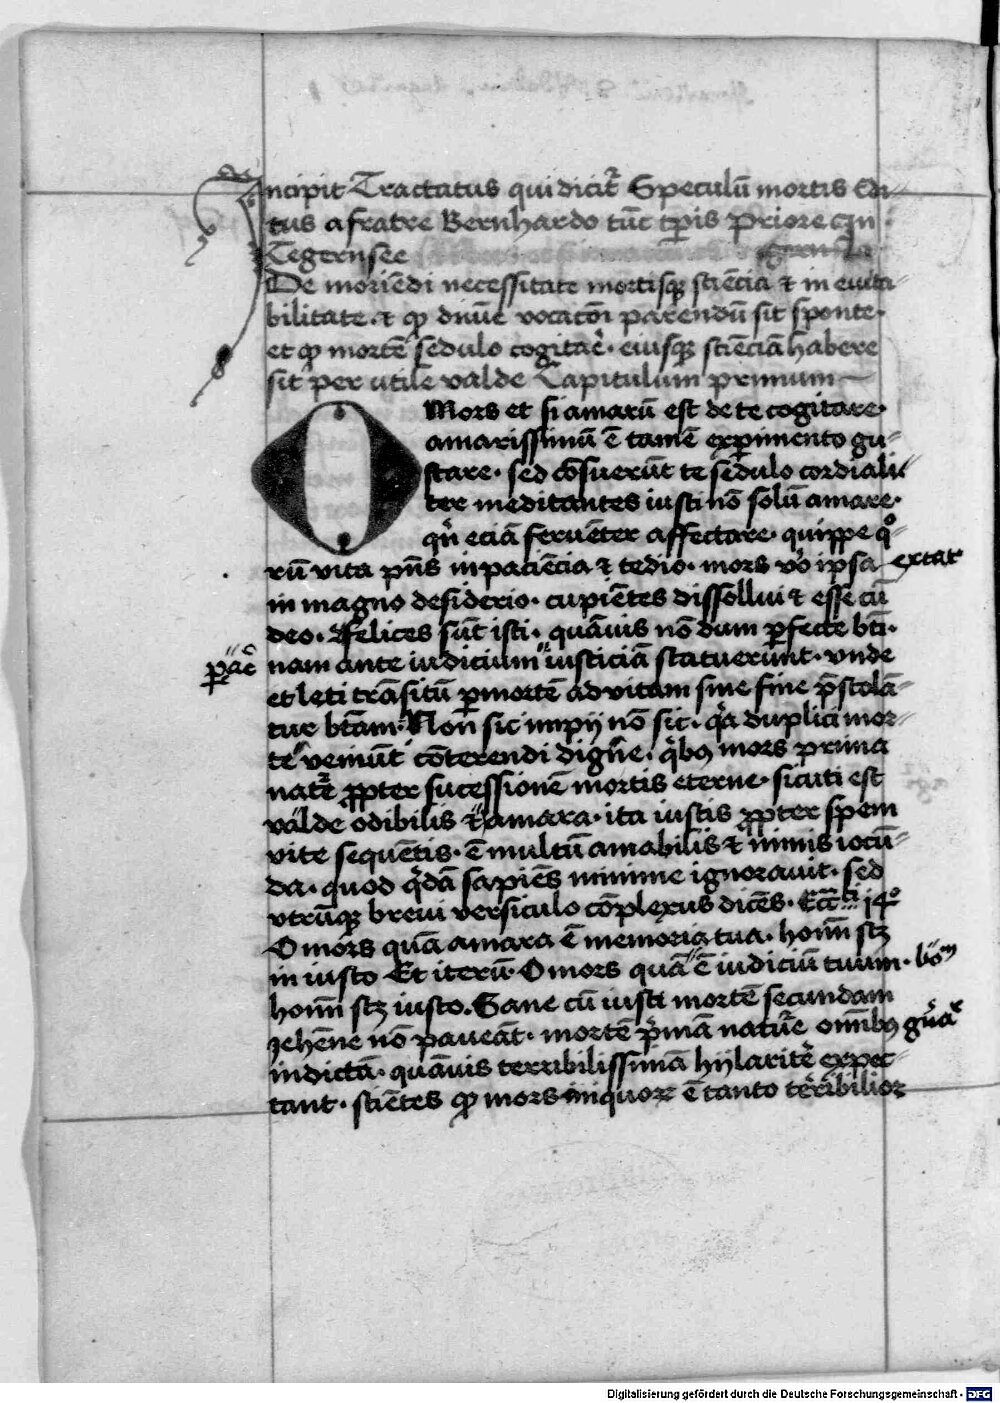 Incipit Tractatus qui dicit᷑ Speculū mortis Edi-
tus a fratre Bernhardo tūc tp̄is Priore In
Tegernsee
De moriēdi necessitate mortisq sciēcia et in euita-
bilitate · et ꝙ diuīe vocacōi parendū sit sponte ·
et ꝙ mortē sedulo cogitar̄e · eiusq sciēciā habere
sit per utile valde Capitulum primum
O Mors et si amarū est de te cogitare ·
amarissimū ē tamē exꝑimento gu-
stare · sed cōsuerūt te sedulo cordiali-
ter meditantes iusti nō solū amare ·
qn̄ eciā feruēter affectare · quippe qͦ-
rū vita pn̄s in paciēcia et tedio · mors vͦo ipsa extat
in magno desiderio · cupiētes dissollui et esse cū
deo · Felices sūt isti · quāuis nō dum ꝑfecte bt̄i ·
nam ante iudicium iusticiā statuerunt · vnde
et leti trāsitū ꝑ mortē ad vitam sine fine p̄stolā-
tur bt̄am · Non sic impij nō sic · qͥa duplici mor-
te veniūt cōterendi digne · qͥbꝰ mors prima
natūre ꝓpter sucessionē mortis eterne · sicuti est
valde odibilis et amara · ita iustis ꝓpter spem
vite sequētis · ē multū amabilis et nimis iocū-
da · quod qͥdā sapiēs minime ignorauit · sed
vtrūq breui versiculo cōplexus dicēs · Ecc̄ci 14ͦ
O mors quā amara ē memoria tua · hoīni scꝫ
in iusto Et iterū · O mors quā ē iudiciū tuum · bōm
hoīni scꝫ iusto · Sane cū iusti mortē secundam
jehēne nō paueāt · mortē pͥmā natūre om̄ibꝰ
indictā · quāuis terribilissimā hijlaritēr expec-
tant · sciētes ꝙ mors iniquorum ē tanto terribilior
Digitalisierung gefördert durch die Deutsche Forschungsgemeinschaft - DFG